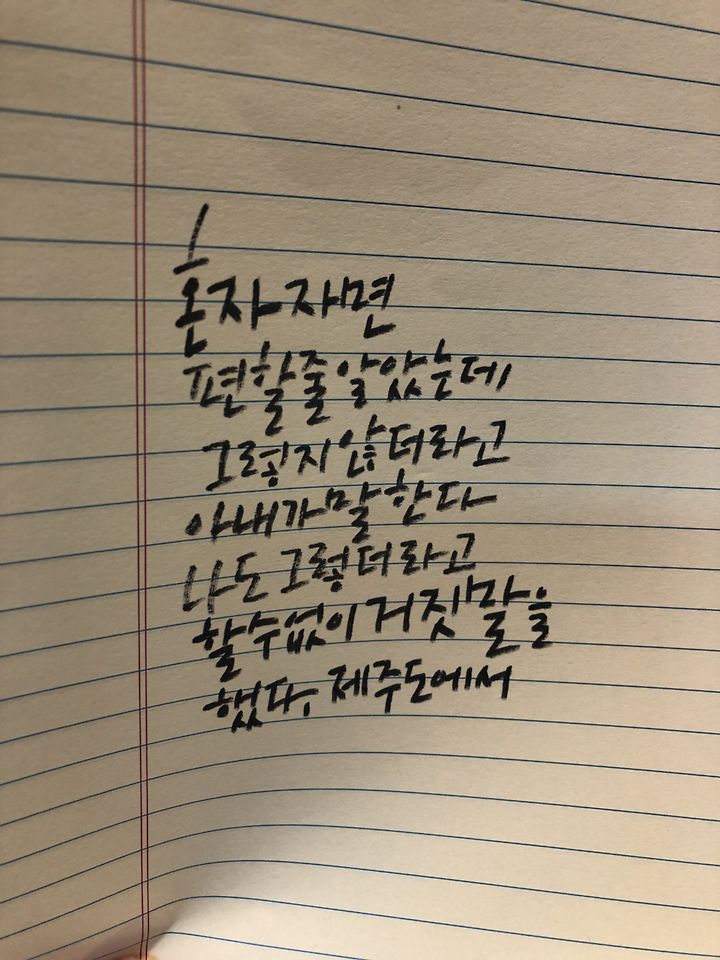 혼자 자면
편할줄 알았는데
그렇지 않더라고
아내가 말 한다
나도 그렇더라고
할수없이 거짓말을
했다. 제주도에서